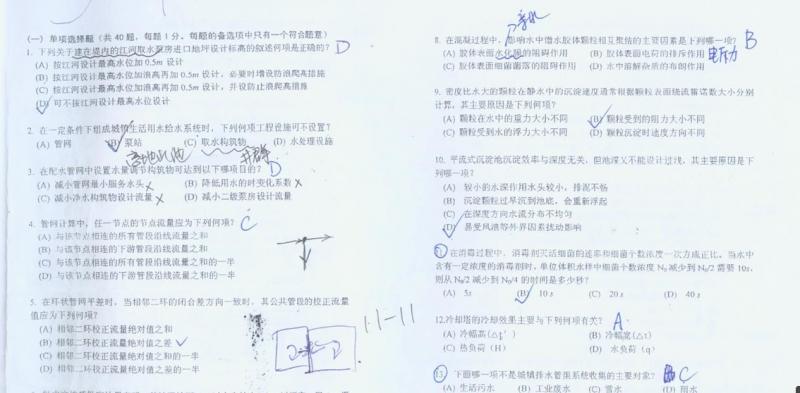 (一) 单项选择题(共 40 题，每题 1 分。每题的备选项中只有一个符合题意)
1. 下列关于建在堤内的江河取水泵房进口地坪设计标高的叙述何项是正确的? D
(A) 按江河设计最高水位加 0.5m 设计
(B) 按江河设计最高水位加浪高再加 0.5m 设计，必要时增设防浪爬高措施
(C) 按江河设计最高水位加浪高再加 0.5m 设计，并设防止浪爬高措施
(D) 可不按江河设计最高水位设计
2. 在一定条件下组成城镇生活用水给水系统时，下列何项工程设施可不设置?
(A) 管网 (B) 泵站 (C) 取水构筑物 (D) 水处理设施
高地水池 井群
3. 在配水管网中设置水量调节构筑物可达到以下哪项目的? D
(A) 减小管网最小服务水头 x (B) 降低用水的时变化系数 x
(C) 减小净水构筑物设计流量 x (D) 减小二级泵房设计流量
4. 管网计算中，任一节点的节点流量应为下列何项? C
(A) 与该节点相连的所有管段沿线流量之和
(B) 与该节点相连的下游管段沿线流量之和
(C) 与该节点相连的所有管段沿线流量之和的一半
(D) 与该节点相连的下游管段沿线流量之和的一半
5. 在环状管网平差时，当相邻二环的闭合差方向一致时，其公共管段的校正流量
值应为下列何项?
(A) 相邻二环校正流量绝对值之和
(B) 相邻二环校正流量绝对值之差
(C) 相邻二环校正流量绝对值之和的一半
(D) 相邻二环校正流量绝对值之差的一半
11-11
亲水
8. 在混凝过程中，影响水中憎水胶体颗粒相互聚结的主要因素是下列哪一项? B
(A) 胶体表面水化膜的阻碍作用 (B) 胶体表面电荷的排斥作用 电斥力
(C) 胶体表面细菌菌落的阻碍作用 (D) 水中溶解杂质的布朗作用
9. 密度比水大的颗粒在静水中的沉淀速度通常根据颗粒表面绕流雷诺数大小分别
计算，其主要原因是下列何项?
(A) 颗粒在水中的重力大小不同 (B) 颗粒受到的阻力大小不同
(C) 颗粒受到水的浮力大小不同 (D) 颗粒沉淀时速度方向不同
10. 平流式沉淀池沉淀效率与深度无关，但池深又不能设计过浅，其主要原因是下
列哪一项?
(A) 较小的水深作用水头较小，排泥不畅
(B) 沉淀颗粒过早沉到池底，会重新浮起
(C) 在深度方向水流分布不均匀
(D) 易受风浪等外界因素扰动影响
11. 在消毒过程中，消毒剂灭活细菌的速率和细菌个数浓度一次方成正比，当水中
含有一定浓度的消毒剂时，单位体积水样中细菌个数浓度 N₀ 减少到 N₀/2 需要 10s，
则从 N₀/2 减少到 N₀/4 的时间是多少秒?
(A) 5s (B) 10 s (C) 20 s (D) 40 s
12.冷却塔的冷却效果主要与下列何项有关? A
(A) 冷幅高(Δt′) (B) 冷幅宽(Δt)
(C) 热负荷(H) (D) 水负荷(q)
13. 下面哪一项不是城镇排水管渠系统收集的主要对象? C
(A) 生活污水 (B) 工业废水 (C) 雪水 (D) 雨水